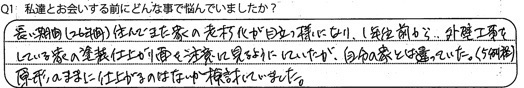 Q1 私達とお会いする前にどんな事で悩んでいましたか？
長い期間(26年間)住んできた家の老朽化が目立つ様になり、1年位前から、外壁工事を
している家の塗装仕上り面を注意に見るようにしていたが、自分の家とは違っていた。(5例程)
原形のままに仕上がるのはないか検討していました。